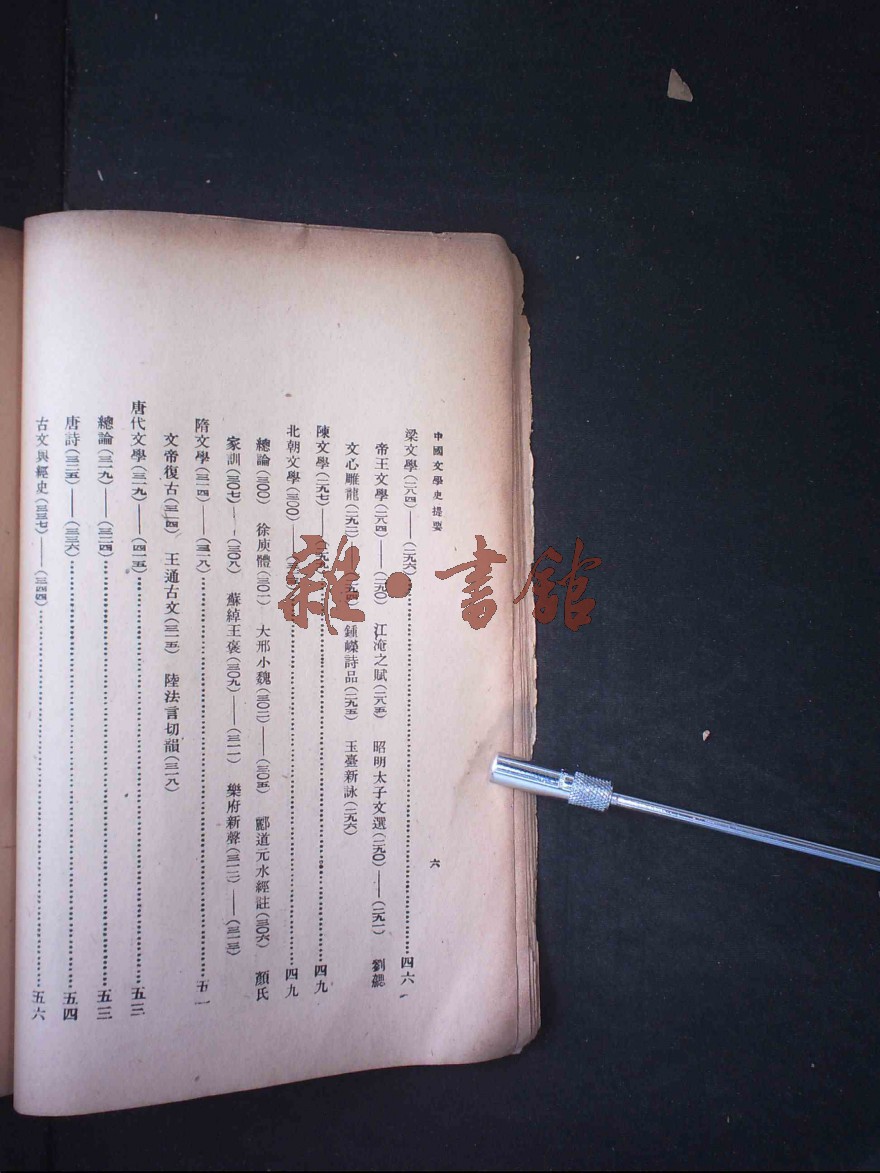 中國文學史提要
六
梁文學(二八四)——(二九六)……四六
帝王文學(二八四)——(二九〇) 江淹之賦(二八五) 昭明太子文選(二九〇)——(二九一) 劉勰
文心雕龍(二九二)——(二九四) 鍾嶸詩品(二九五) 玉臺新詠(二九六)
陳文學(二九七)——(二九九)……四九
北朝文學(三〇〇)——……四九
總論(三〇〇) 徐庾體(三〇一) 大邢小魏(三〇二)——(三〇五) 酈道元水經註(三〇六) 顏氏
家訓(三〇七)——(三〇八) 蘇綽王褒(三〇九)——(三一一) 樂府新聲(三一二)——(三一三)
隋文學(三一四)——(三一八)……五一
文帝復古(三一四) 王通古文(三一五) 陸法言切韻(三一八)
唐代文學(三一九)——(四一五)……五三
總論(三一九)——(三二四)……五三
唐詩(三二五)——(三三六)……五四
古文與經史(三三七)——(三四四)……五六
雜·書館